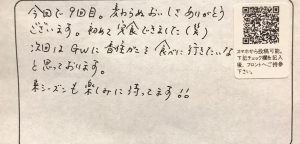 今回で9回目。変わらぬおいしさありがとう
ございます。初めて完食できました(笑)
次回はGWに香住ガニを食べに行きたいな
と思っております。
来シーズンも楽しみに待ってます!!
スマホから投稿可能。
下記チェック欄を記入
後、フロントへご持参
下さい。